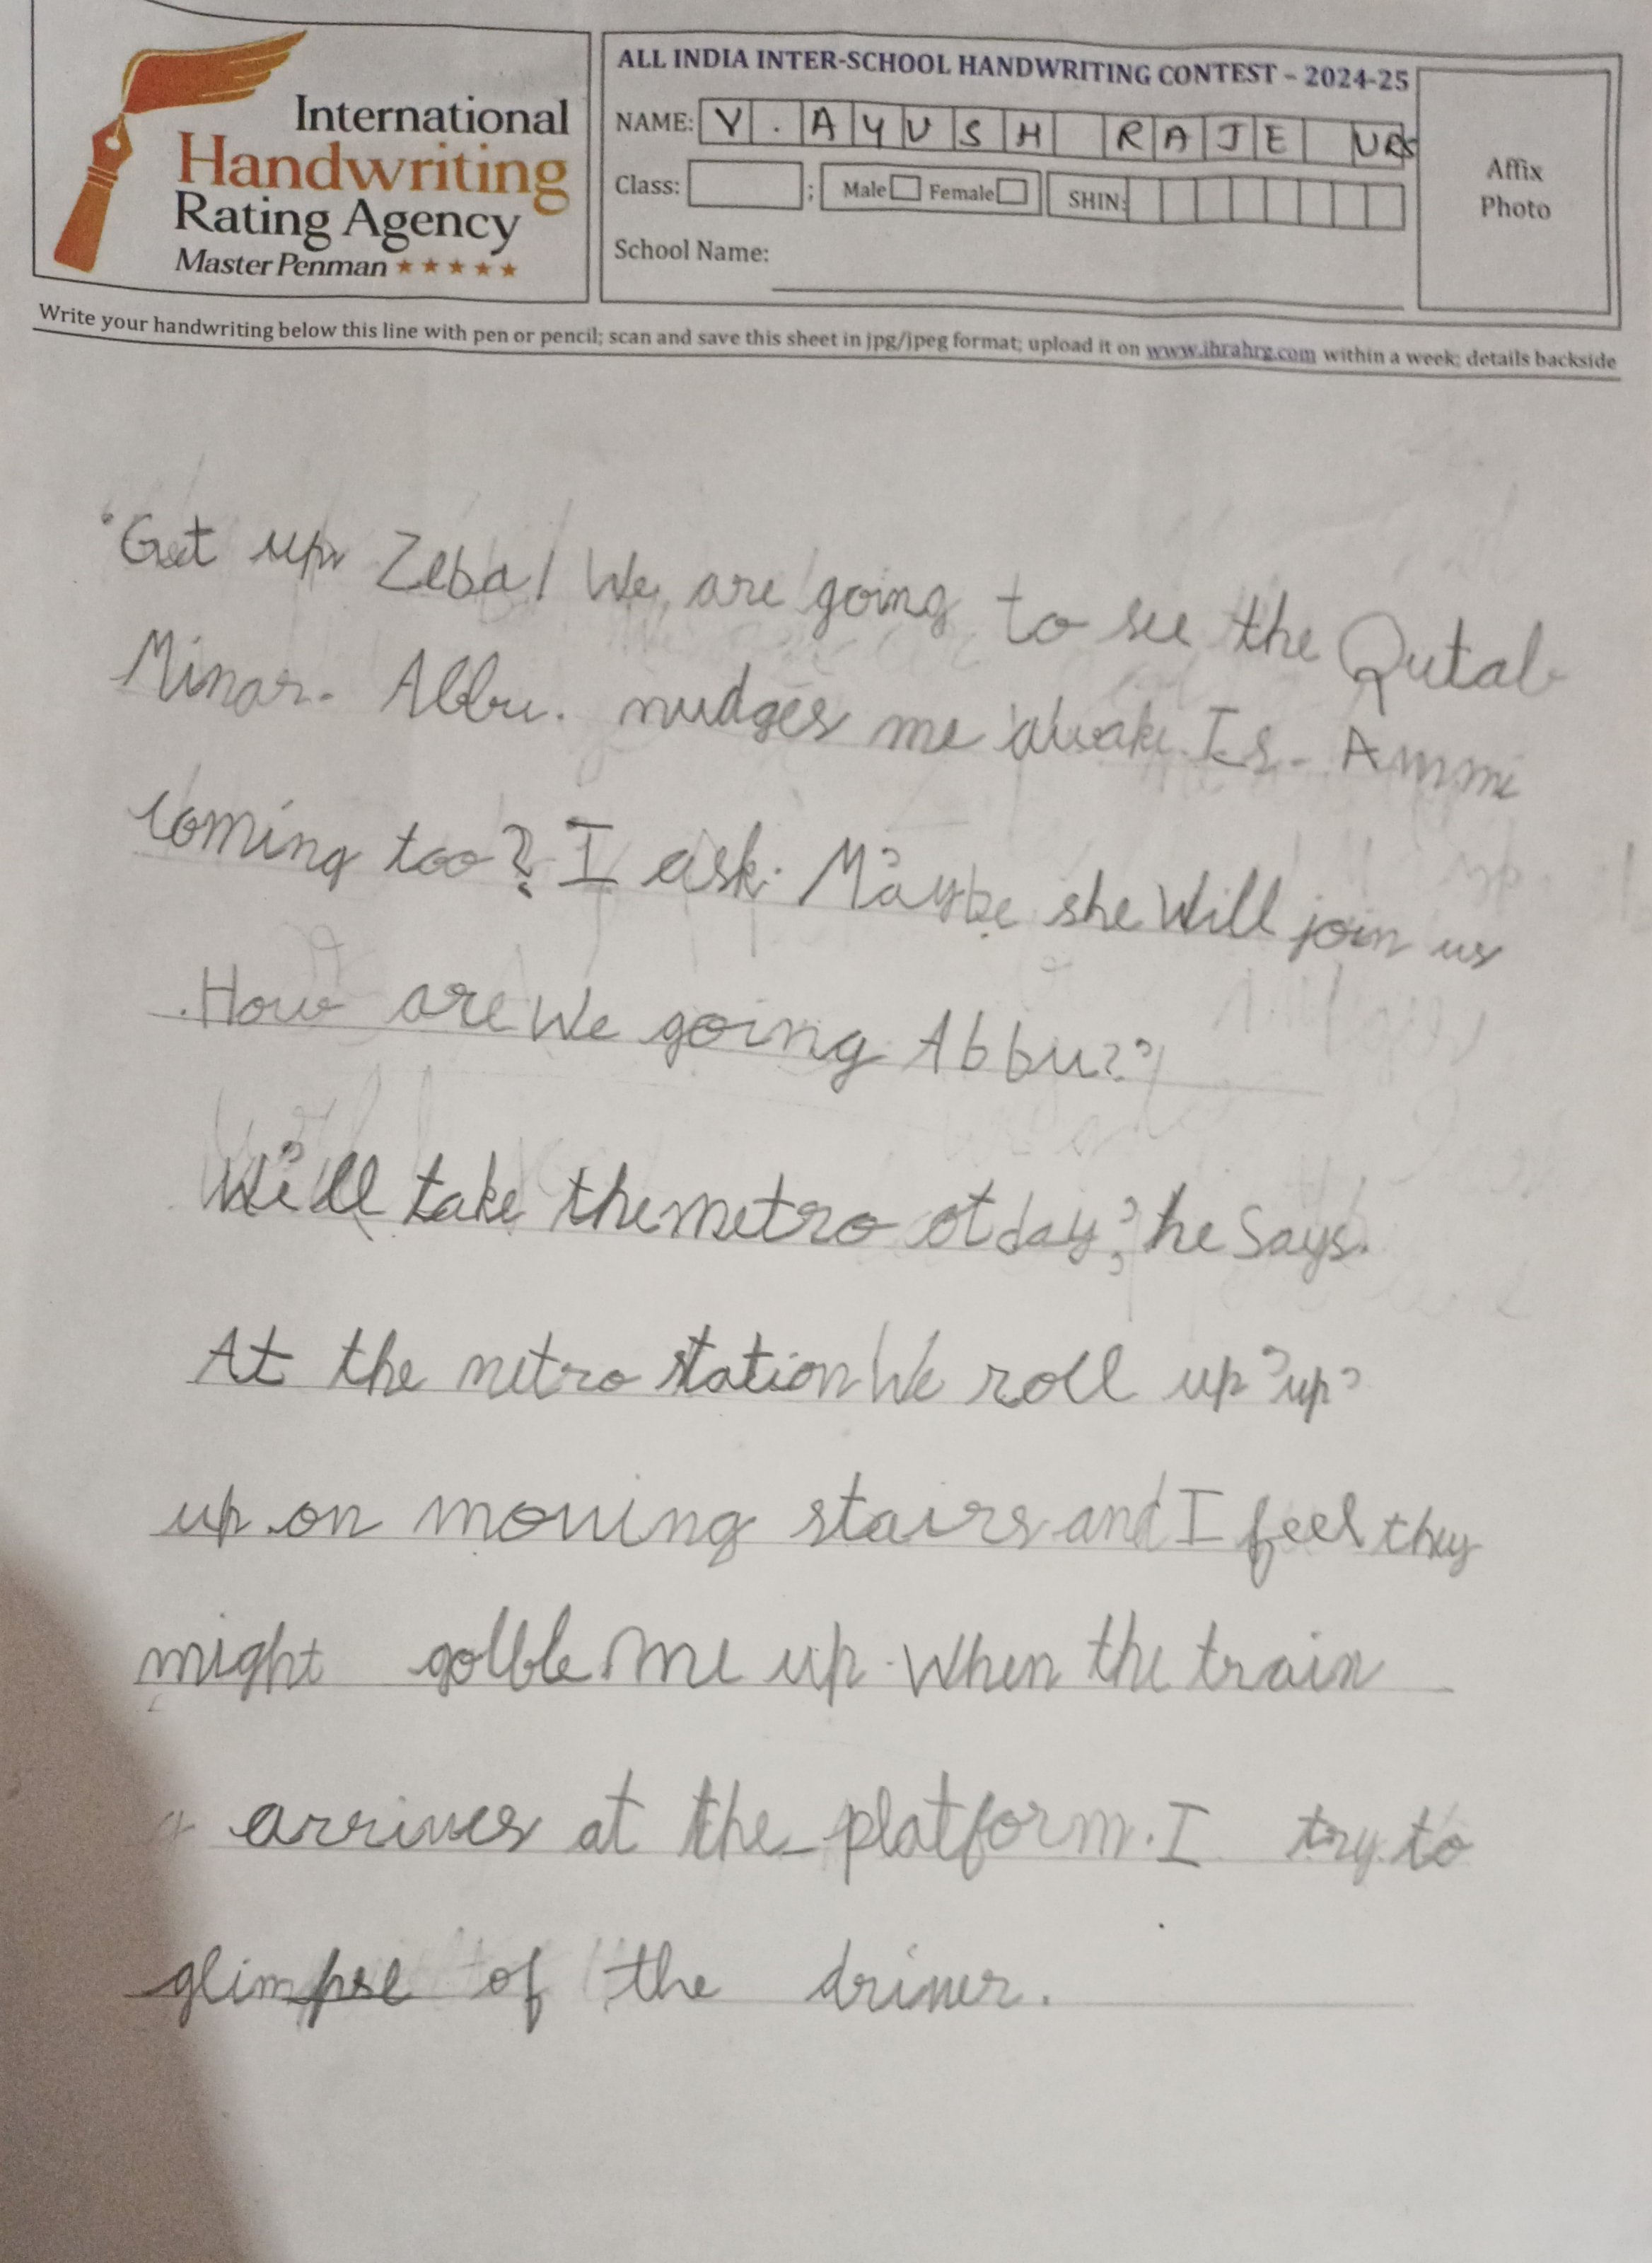 International
Handwriting
Rating Agency
Master Penman ★★★★★
ALL INDIA INTER-SCHOOL HANDWRITING CONTEST – 2024-25
NAME: Y. AYUSH RAJE URS
Class: ; Male Female SHIN:
School Name:
Affix
Photo
Write your handwriting below this line with pen or pencil; scan and save this sheet in jpg/jpeg format; upload it on www.ihrahrg.com within a week; details backside
"Get up Zeba! We are going to see the Qutab
Minar. Abbu. nudges me awake. Is. Ammi
coming too? I ask. Maybe she Will join us
. How are We going Abbu??
We'll take the metro otday,' he Says.
At the metro station We roll up 'up'
up on moving stairs and I feel they
might golble me up. When the train
arrives at the platform. I try to
glimpse of the driver.